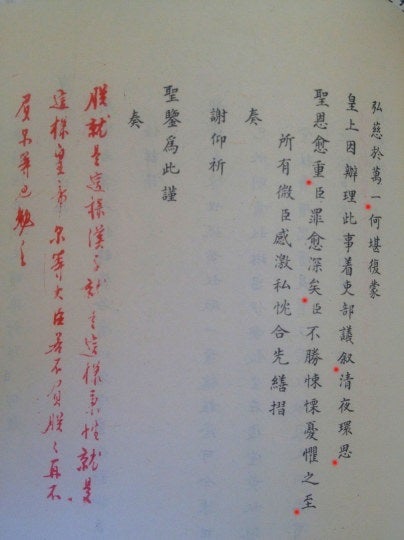 弘慈於萬一何堪復蒙
皇上因辦理此事着吏部議叙清夜環思
聖恩愈重臣罪愈深矣臣不勝悚慄憂懼之至
所有微臣感激私忱合先繕摺
奏
謝仰祈
聖鑒爲此謹
奏
朕就是這樣漢子就是這樣秉性就是
這樣皇帝尔等大臣若不負朕朕再不
負尔等也勉之